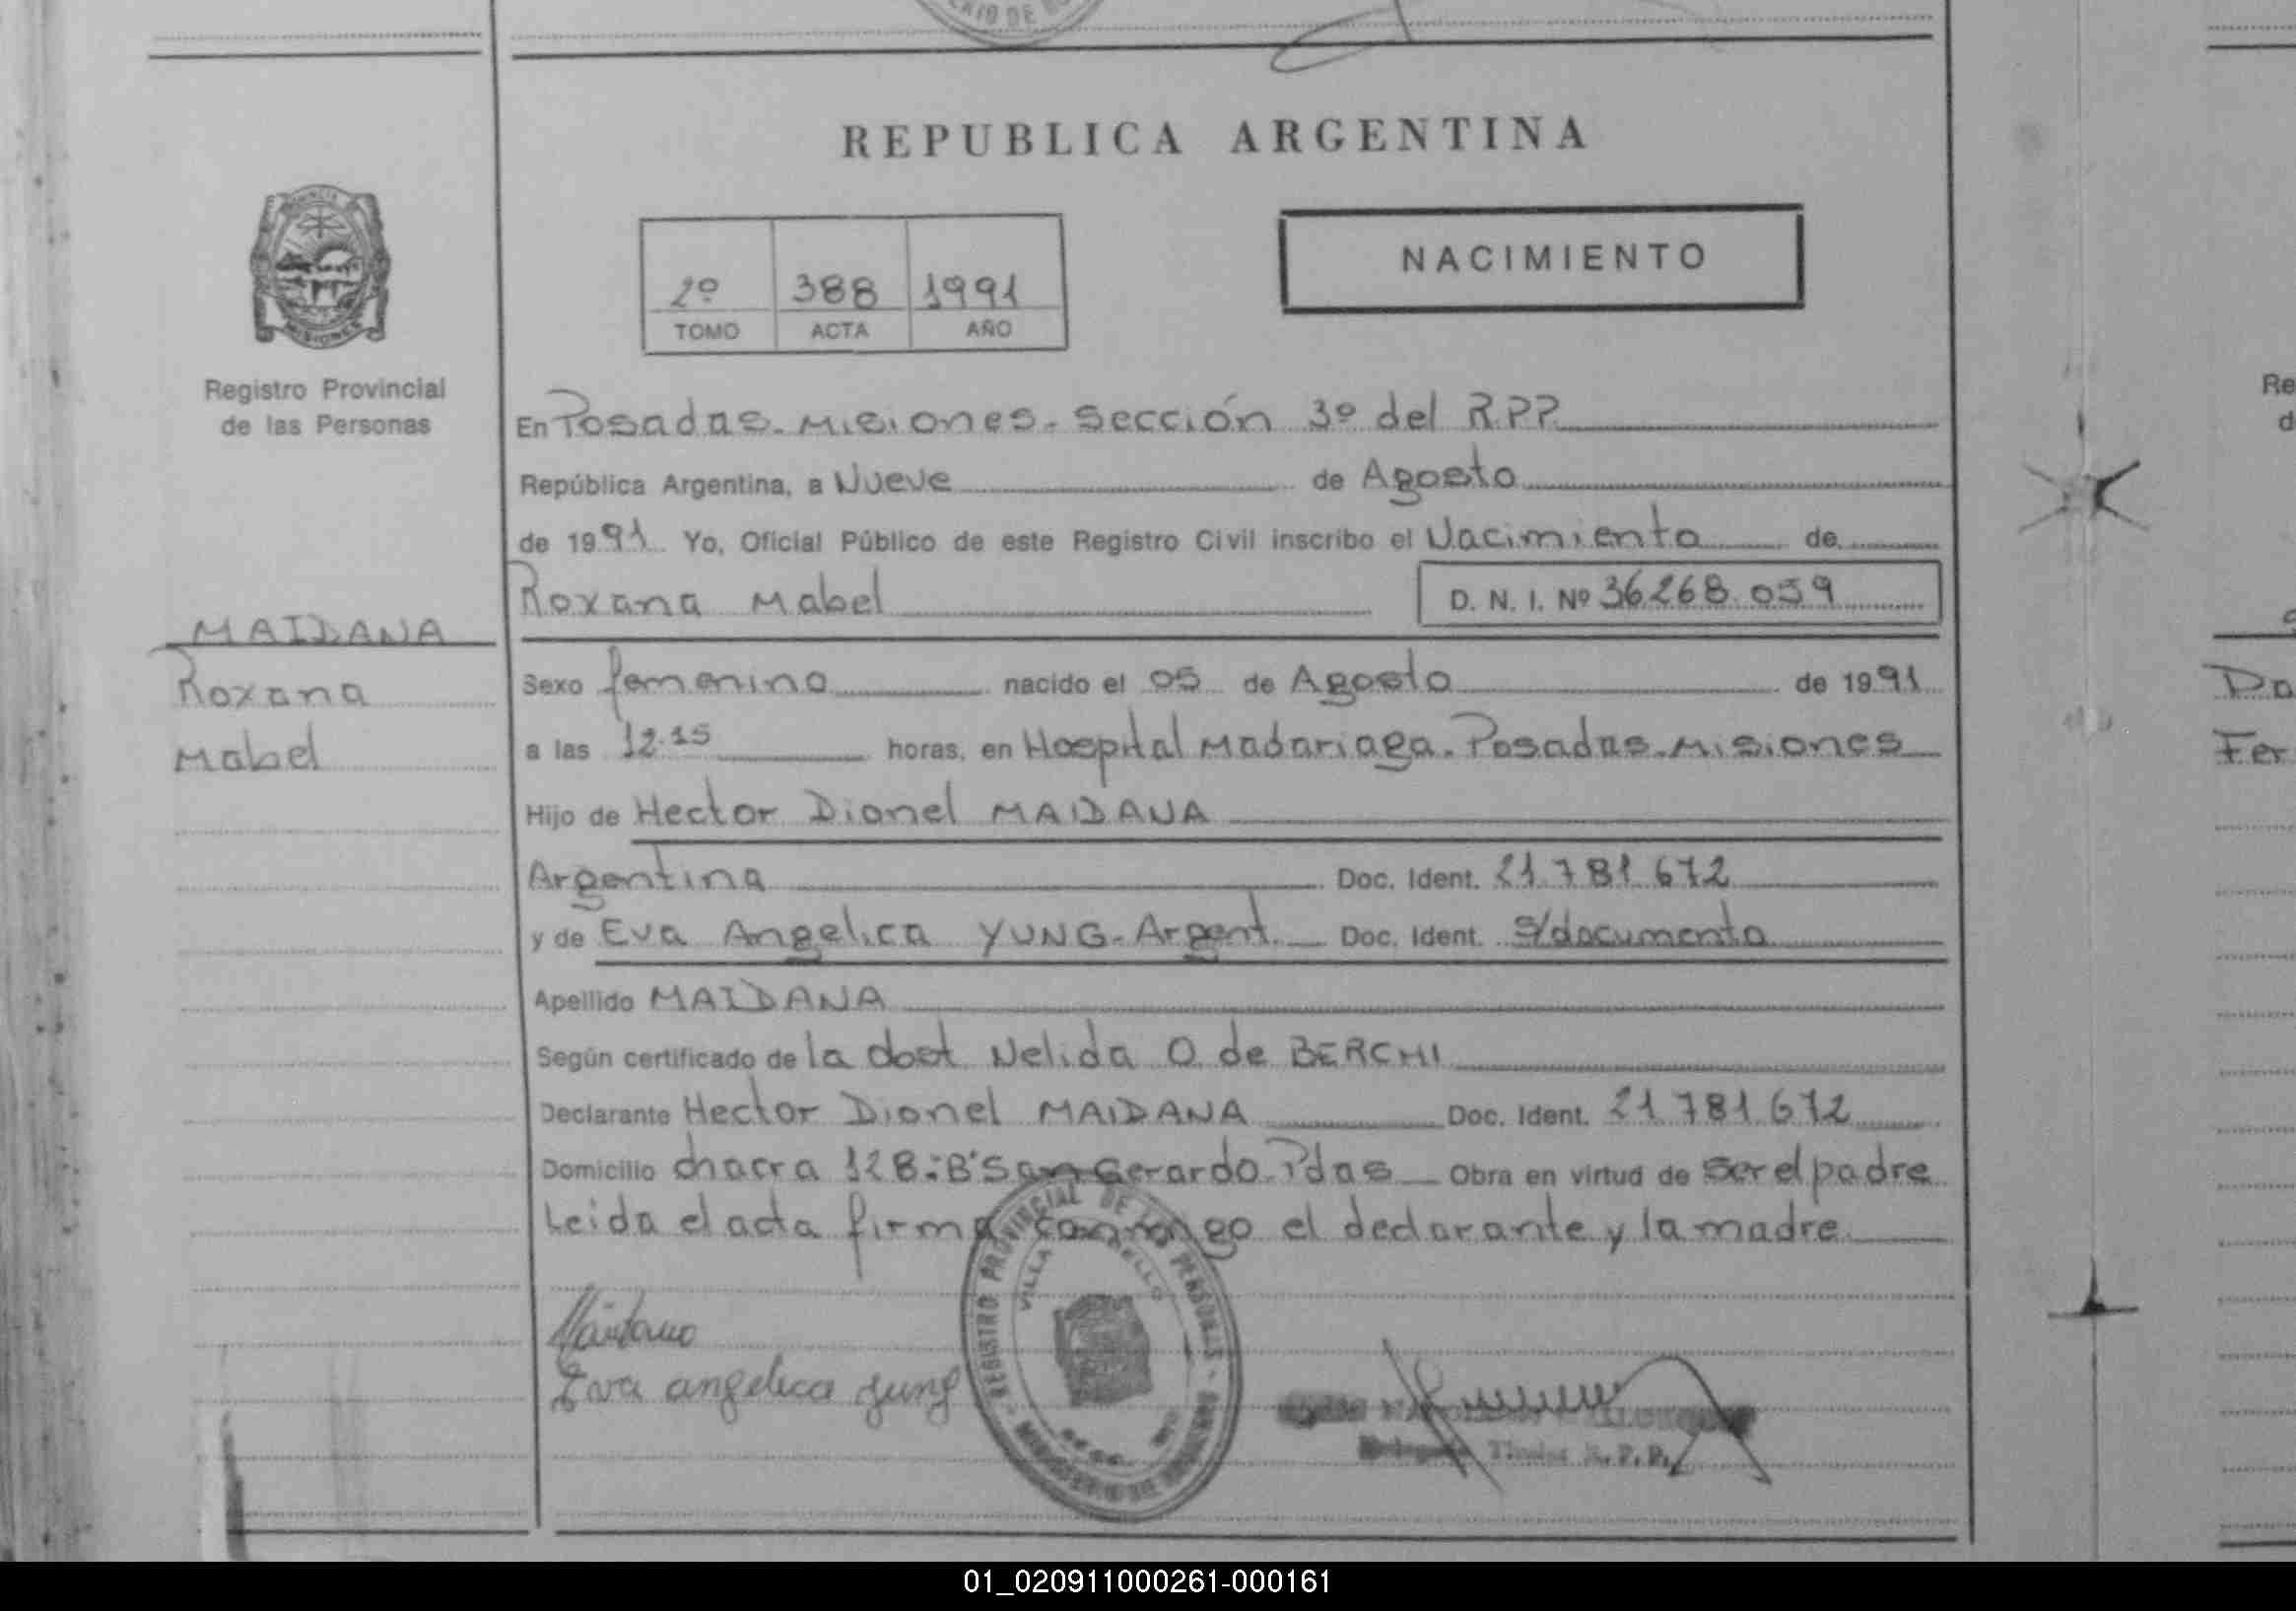 REPUBLICA ARGENTINA
NACIMIENTO
2º 388 1991
TOMO ACTA AÑO
Registro Provincial
de las Personas
MAIDANA
Roxana
Mabel
En Posadas. Misiones. Sección 3º del R.P.P.
República Argentina, a Nueve de Agosto
de 1991 Yo, Oficial Público de este Registro Civil inscribo el Nacimiento de
Roxana Mabel D. N. I. Nº 36.268.059
Sexo femenino nacido el 05 de Agosto de 1991
a las 12.15 horas, en Hospital Madariaga. Posadas. Misiones
Hijo de Hector Dionel MAIDANA
Argentina Doc. Ident. 21.781.672
y de Eva Angelica YUNG. Argent. Doc. Ident. S/documento
Apellido MAIDANA
Según certificado de la doct Nelida O. de BERCHI
Declarante Hector Dionel MAIDANA Doc. Ident. 21.781.672
Domicilio chacra 128. Bº San Gerardo. Pdas Obra en virtud de ser el padre
Leida el acta firma conmigo el declarante y la madre
Maidana
Eva angelica Jung
REGISTRO PROVINCIAL DE LAS PERSONAS
VILLA
Titular R.P.P.
Re
d
Da
Fer
01_020911000261-000161